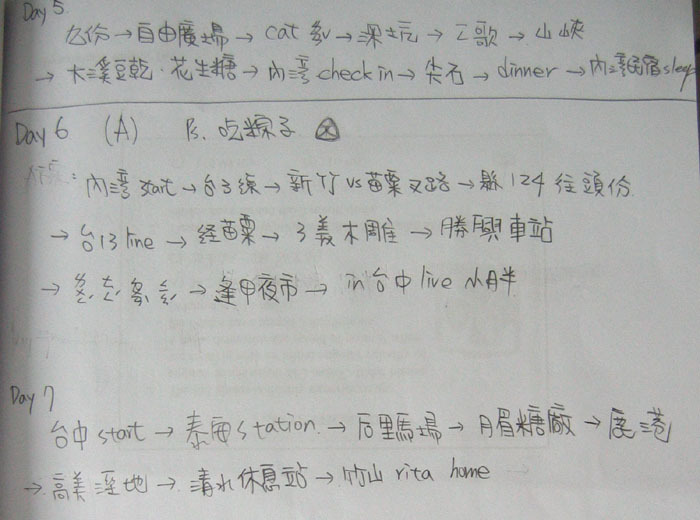 Day 5
九份→自由廣場→cat ㄉㄨ→深坑→ㄈ歌→山峽
→大溪豆乾·花生糖→內灣 check in→尖石→dinner→內灣民宿sleep
Day 6 (A) B. 吃粽子
內灣 start→台3線→新竹 vs 苗栗叉路→縣124往頭份
→台13 line→經苗栗→3義木雕→勝興車站
→逢甲夜市→in 台中 live 小胖
Day 7
台中 start→泰安station.→后里馬場→月眉糖廠→鹿港
→高美溼地→清水休息站→竹山 rita home